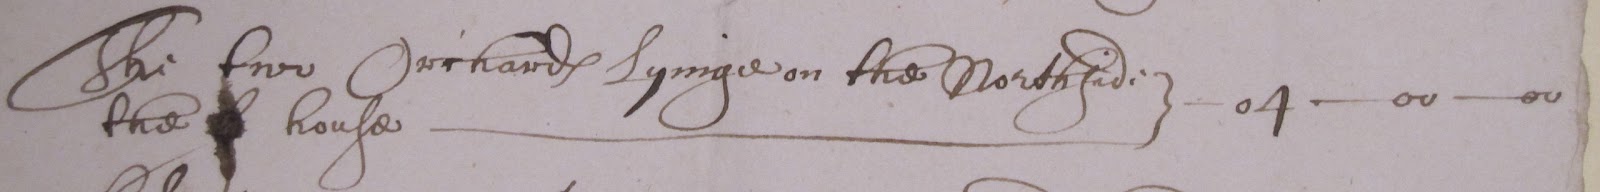 The two Orchards Lyinge on the Northside } — 04 — 00 — 00
the house